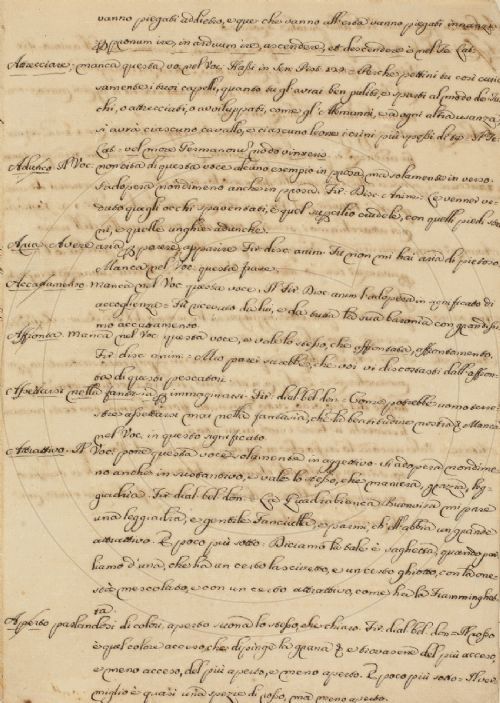 vanno piegati addietro, e que che vanno all'erta vanno piegati innanzi.
pronum ire, in arduum ire, ascendere, et descendere è nel Te. Lat.
Attrecciare: manca questa vo. nel Voc. Hassi in Sen. Pist. 124. = Perche pettini tu così curio-
samente i tuoi capelli, quando tu gli avrai ben puliti, e sparti al modo de' Tur-
chi, o attrecciati, o avviluppati, come gli Alemanni, e a ogni altra usanza,
si avrà ciascuno cavallo, e ciascuno leone i crini più spessi di te. Il Te.
Lat. = vel more Germanorum nodo vinxeris
Adunco. Il Voc. non cita di questa voce alcuno esempio in prosa, ma solamente in verso.
Si adopera nondimeno anche in prosa. Fir. Disc. Anim.: Le venner ve-
duto quegli occhi spaventati, e quel supercilio crudele, con quelli piedi stra-
ni, e quelle unghie adunche.
Aria. Avere aria, per parere, apparire. Fir. disc. anim. Tu non mi hai aria di pietoso.
Manca nel Voc. questa frase.
Accarezzamento manca nel Voc. questa voce. Il Fir. Disc. anim. l'adopera in significato di
accoglienza = Fu ricevuto da lui, e da tutta la sua baronia con grandissi-
mo
Affronta manca nel Voc. questa voce, e vale lo stesso, che affrontata, affrontamento.
Fir. disc. anim. = Mio parer sarebbe, che voi vi discostassi dall'affron-
ta di questi pescatori.
Assettarsi nella fantasia per immaginarsi. Fir. dial. bel. don. = Come potrebbe uomo terre-
stre assettarsi mai nella fantasia, che la beatitudine nostra &. Manca
nel Voc. in questo significato.
Attrattivo. Il Voc. pone questa voce solamente in aggettivo. Si adopera nondime-
no anche in sustantivo, e vale lo stesso, che maniera, grazia, leg-
giadria. Fir. dial. bel. don. = La Quadrabianca Buonvisa mi pare
una leggiadra, e gentile fanciulla, e parmi, ch'ell'abbia un grande
attrattivo. E poco più sotto: Diciamo la tale è vaghetta, quando par-
liamo d'una, che ha un certo lascivetto, e un certo ghiotto, con la one-
stà mescolato, e con un certo attrattivo, come ha la Fiamminghet-
ta.
Aperto parlandosi di colori, aperto suona lo stesso, che chiaro. Fir. dial. bel. don. = Il rosso
è quel colore acceso, che dipinge la grana &. e trovasene del più acceso,
e meno acceso, del più aperto, e meno aperto. E poco più sotto = Il ver-
miglio è quasi una spezie di rosso, ma meno aperto.